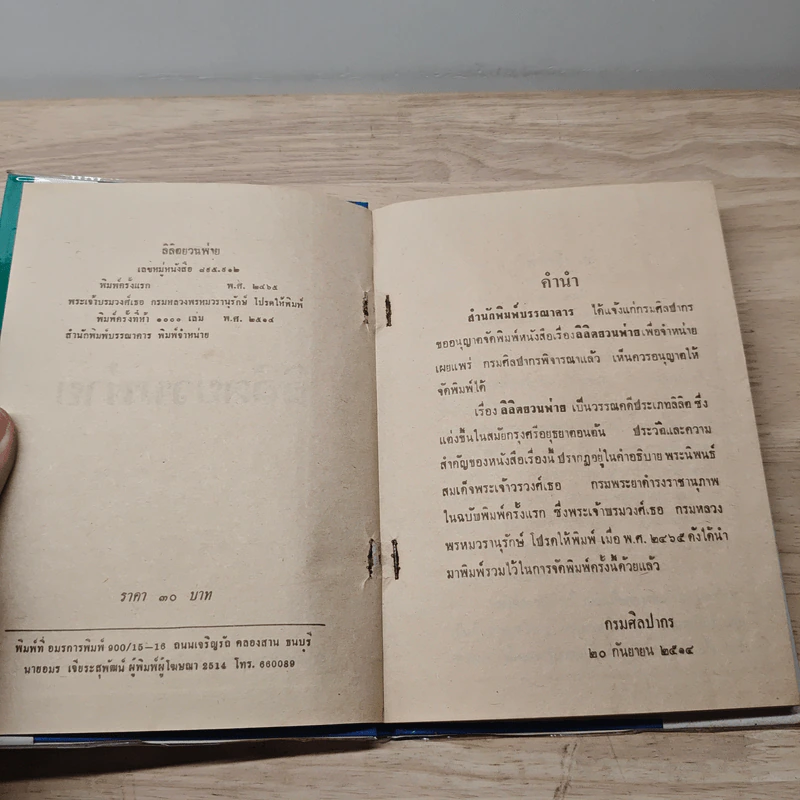 ลิลิตยวนพ่าย
เลขหมู่หนังสือ ๘๙๕.๙๑๒
พิมพ์ครั้งแรก พ.ศ. ๒๔๖๕
พระเจ้าบรมวงศ์เธอ กรมหลวงพรหมวรานุรักษ์ โปรดให้พิมพ์
พิมพ์ครั้งที่ห้า ๑๐๐๐ เล่ม พ.ศ. ๒๕๑๔
สำนักพิมพ์บรรณาคาร พิมพ์จำหน่าย
ราคา ๓๐ บาท
พิมพ์ที่ อมรการพิมพ์ 900/15-16 ถนนเจริญรัถ คลองสาน ธนบุรี
นายอมร เจียระสุพัฒน์ ผู้พิมพ์ผู้โฆษณา 2514 โทร. 660089
คำนำ
สำนักพิมพ์บรรณาคาร ได้แจ้งแก่กรมศิลปากร
ขออนุญาตจัดพิมพ์หนังสือเรื่องลิลิตยวนพ่ายเพื่อจำหน่าย
เผยแพร่ กรมศิลปากรพิจารณาแล้ว เห็นควรอนุญาตให้
จัดพิมพ์ได้
เรื่อง ลิลิตยวนพ่าย เป็นวรรณคดีประเภทลิลิต ซึ่ง
แต่งขึ้นในสมัยกรุงศรีอยุธยาตอนต้น ประวัติและความ
สำคัญของหนังสือเรื่องนี้ ปรากฏอยู่ในคำอธิบาย พระนิพนธ์
สมเด็จพระเจ้าวรวงศ์เธอ กรมพระยาดำรงราชานุภาพ
ในฉบับพิมพ์ครั้งแรก ซึ่งพระเจ้าบรมวงศ์เธอ กรมหลวง
พรหมวรานุรักษ์ โปรดให้พิมพ์ เมื่อ พ.ศ. ๒๔๖๕ ดังได้นำ
มาพิมพ์รวมไว้ในการจัดพิมพ์ครั้งนี้ด้วยแล้ว
กรมศิลปากร
๒๐ กันยายน ๒๕๑๔